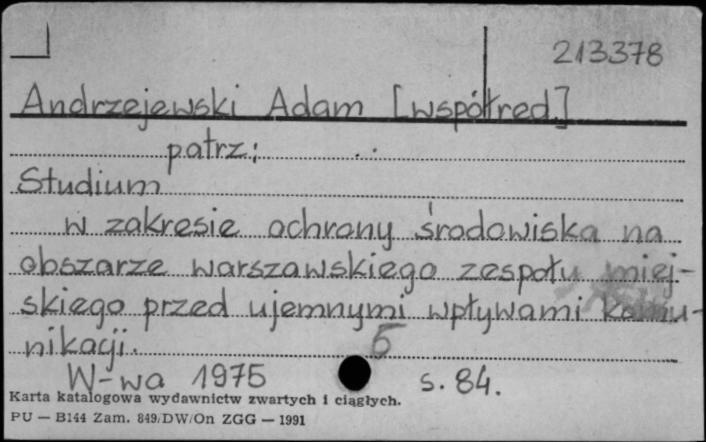 213378
Andrzejewski Adam [współred.]
patrz:
Studium
w zakresie ochrony środowiska na
obszarze warszawskiego zespołu miej-
skiego przed ujemnymi wpływami komu-
nikacji.
W-wa 1975 s. 84.
Karta katalogowa wydawnictw zwartych i ciągłych.
PU — B144 Zam. 849/DW/On ZGG — 1991